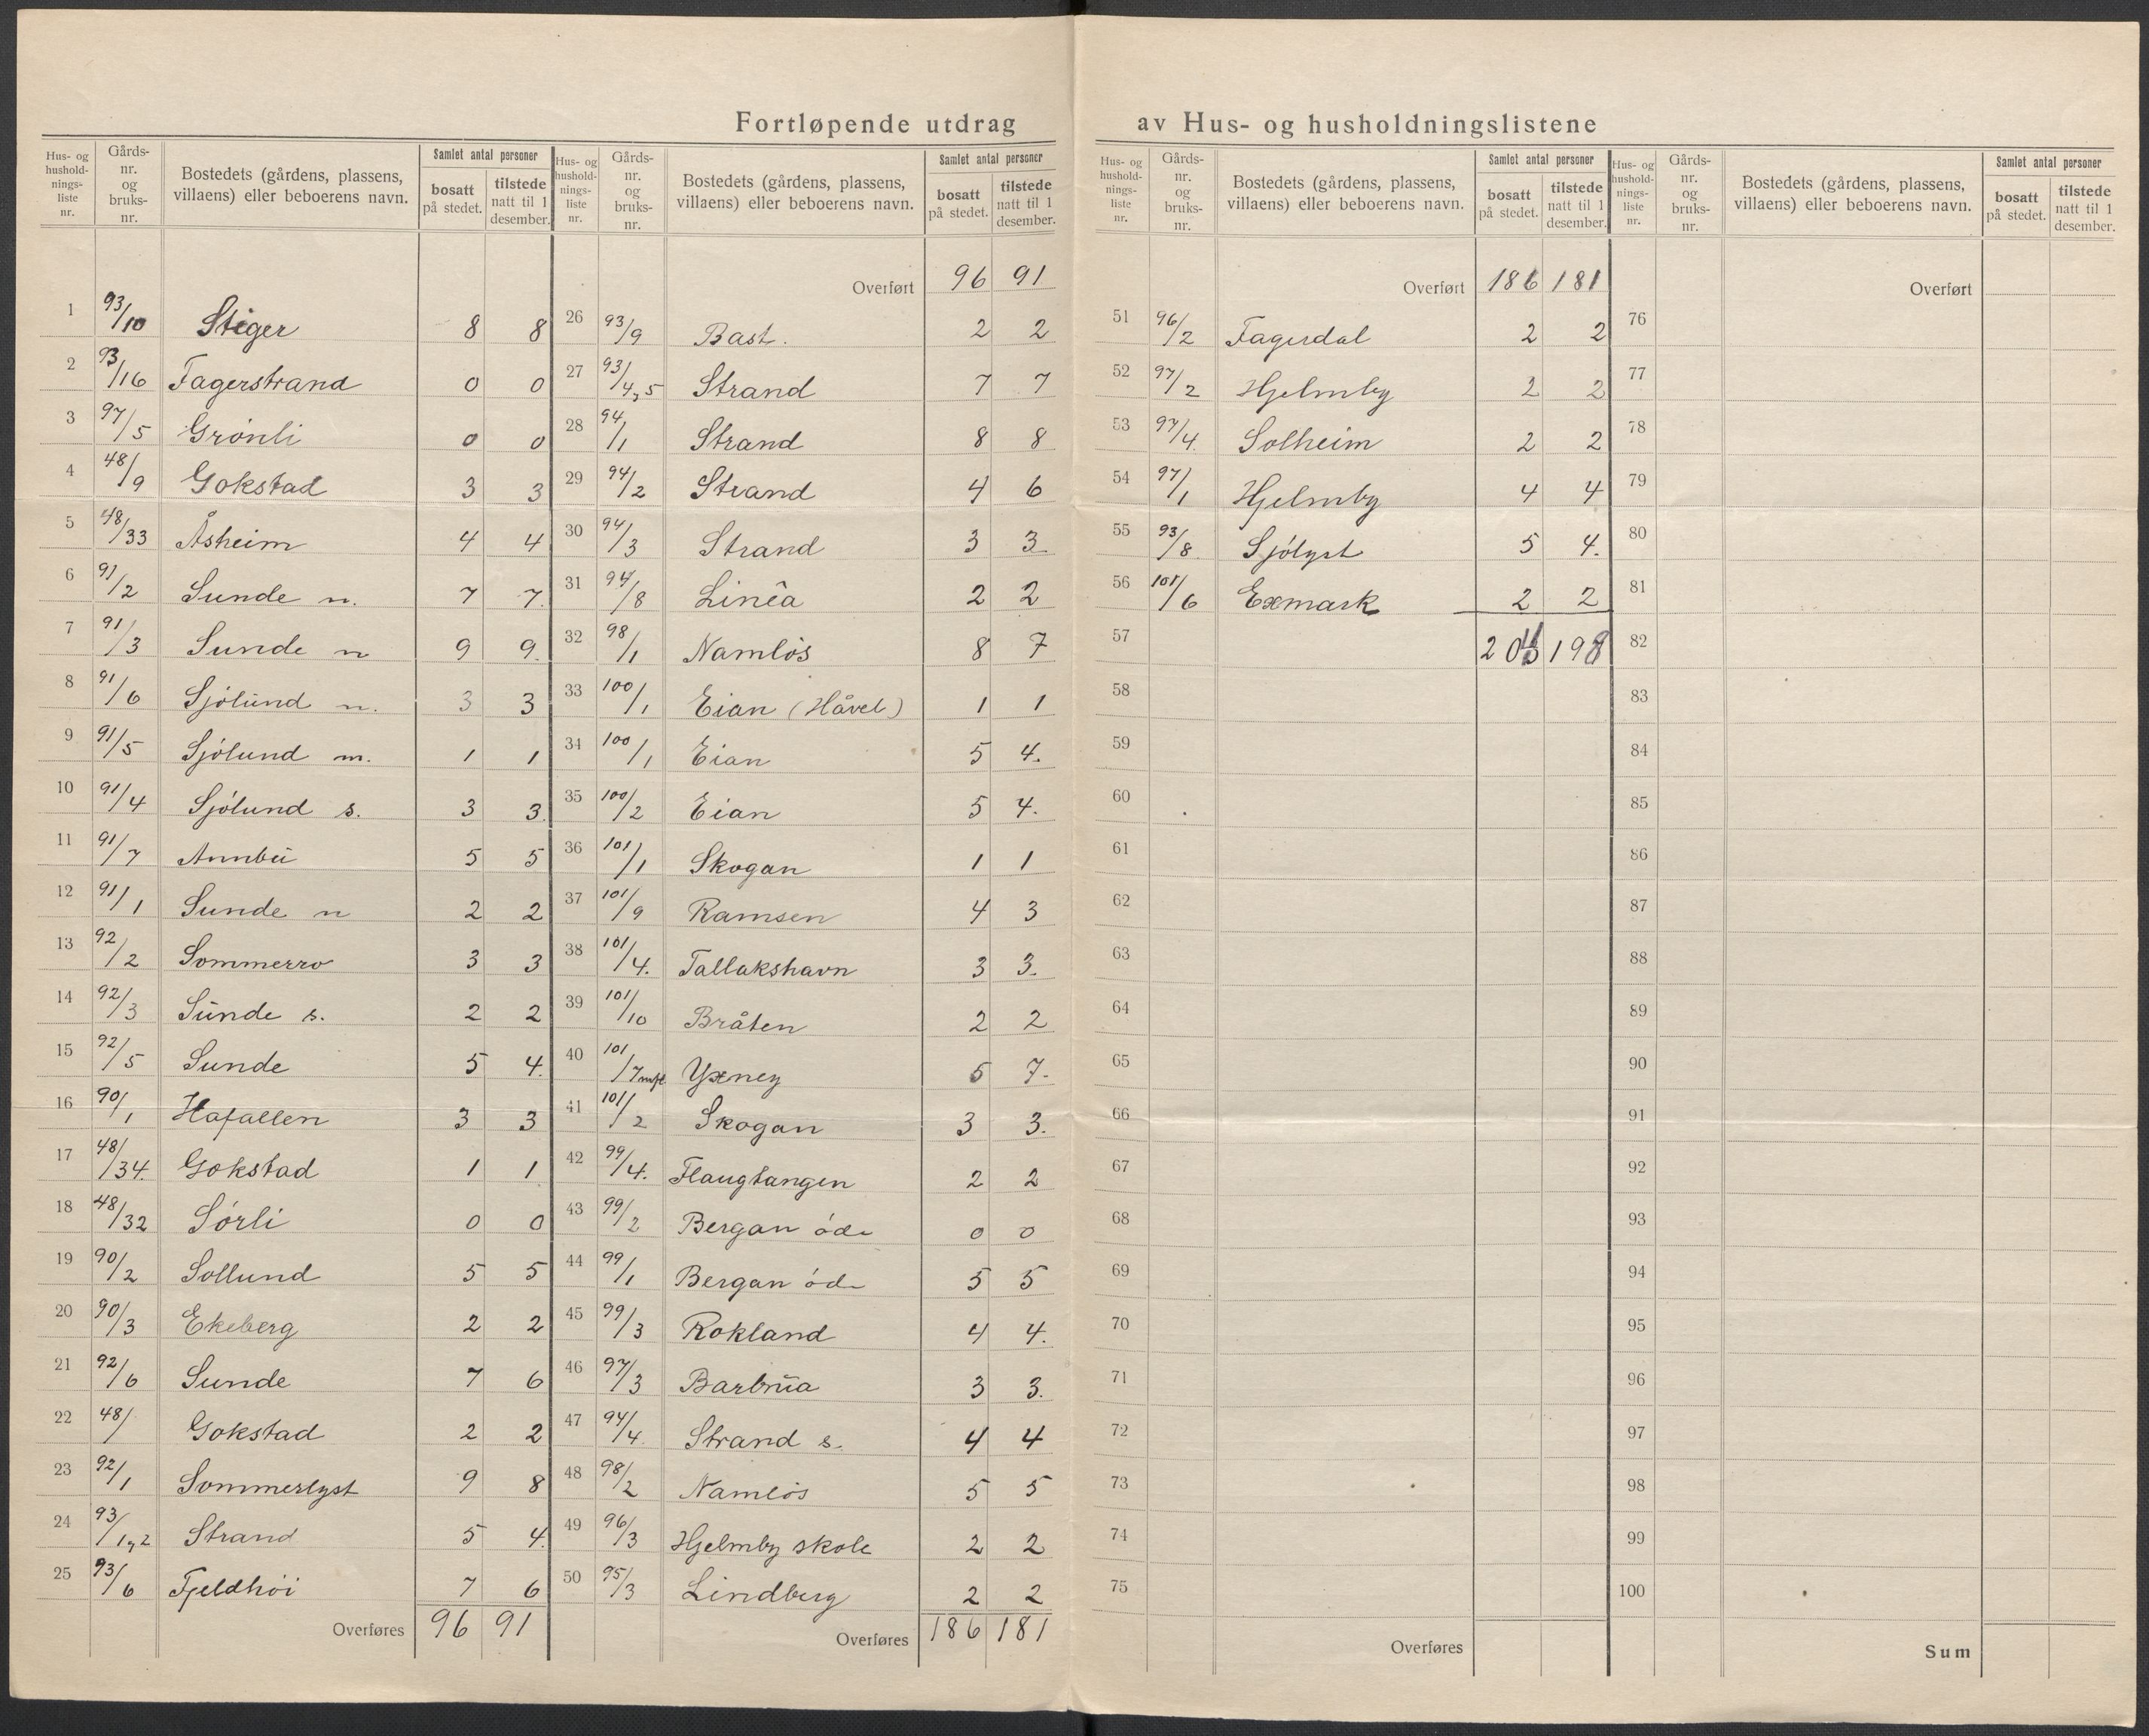 Fortløpende utdrag av Hus- og husholdningslistene
Hus- og husholdnings- liste nr. | Gårds- nr. og bruks- nr. | Bostedets (gårdens, plassens, villaens) eller beboerens navn. | Samlet antal personer | bosatt på stedet. | tilstede natt til 1 desember.
1 93/10 Stiger 8 8
2 93/16 Fagerstrand 0 0
3 97/5 Grönli 0 0
4 48/9 Gokstad 3 3
5 48/33 Åsheim 4 4
6 91/2 Sunde n. 7 7.
7 91/3 Sunde n 9 9.
8 91/6 Sjölund n. 3 3
9 91/5 Sjölund m. 1 1
10 91/4 Sjölund s. 3 3.
11 91/7 Annbu 5 5
12 91/1 Sunde n 2 2
13 92/2 Sommerro 3 3
14 92/3 Sunde s. 2 2
15 92/5 Sunde 5 4.
16 90/1 Hafallen 3 3
17 48/34. Gokstad 1 1
18 48/32 Sörli 0 0
19 90/2 Sollund 5 5
20 90/3 Ekeberg 2 2
21 92/6 Sunde 7 6
22 48/ Gokstad 2 2
23 92/1 Sommerlyst 9 8
24 93/1,2 Strand 5 4.
25 93/6 Fjeldhöi 7 6
Overføres 96 91
Hus- og husholdnings- liste nr. | Gårds- nr. og bruks- nr. | Bostedets (gårdens, plassens, villaens) eller beboerens navn. | Samlet antal personer | bosatt på stedet. | tilstede natt til 1 desember.
Overført 96 91
26 93/9 Bast. 2 2
27 93/4,5 Strand 7 7
28 94/1 Strand 8 8
29 94/2 Strand 4 6
30 94/3 Strand 3 3.
31 94/8 Linêa 2 2
32 98/1 Namlös 8 7
33 100/1 Eian (Håvel) 1 1
34 100/1 Eian 5 4.
35 100/2 Eian 5 4.
36 101/1 Skogan 1 1
37 101/9 Ramsen 4 3
38 101/4. Tallakshavn 3 3.
39 101/10 Bråten 2 2
40 101/7 mfl Yxney 5 7.
41 101/2 Skogan 3 3.
42 99/4. Flaugtangen 2 2
43 99/2 Bergan öde 0 0
44 99/1 Bergan öde 5 5
45 99/3 Rokland 4 4.
46 97/3 Barbrua 3 3.
47 94/4. Strand s. 4 4
48 98/2 Namlös 5 5
49 96/3 Hjelmby skole 2 2
50 95/3 Lindberg 2 2
Overføres 186 181
Hus- og husholdnings- liste nr. | Gårds- nr. og bruks- nr. | Bostedets (gårdens, plassens, villaens) eller beboerens navn. | Samlet antal personer | bosatt på stedet. | tilstede natt til 1 desember.
Overført 186 181
51 96/2 Fagerdal 2 2
52 97/2 Hjelmby 2 2
53 97/4. Solheim 2 2
54 97/1 Hjelmby 4 4
55 93/8. Sjölyst 5 4.
56 101/6 Exmark 2 2
57 198
58
59
60
61
62
63
64
65
66
67
68
69
70
71
72
73
74
75
Overføres
Hus- og husholdnings- liste nr. | Gårds- nr. og bruks- nr. | Bostedets (gårdens, plassens, villaens) eller beboerens navn. | Samlet antal personer | bosatt på stedet. | tilstede natt til 1 desember.
Overført
76
77
78
79
80
81
82
83
84
85
86
87
88
89
90
91
92
93
94
95
96
97
98
99
100
Sum